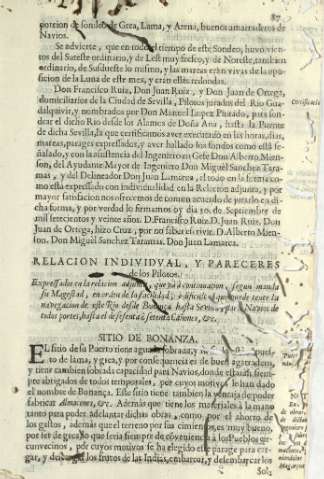 87
porcion de sondeo de Greda, Lama, y Arena, buenos amarraderos de
Navios.
Se advierte, que en todo el tiempo de este Sondeo, huvo vientos
del Sureste ordinario, y de Lest muy fresco, y de Noreste, tambien
ordinario, de Sudueste lo mismo, y las mareas eran vivas de la oposicion
de la Luna de este mes, y eran en ellas redondas.
Don Francisco Ruiz, Don Juan Ruiz, y Don Juan de Ortega,
domiciliarios de la Ciudad de Sevilla, Pilotos jurados del Rio Guadalquivir,
y nombrados por Don Manuel Lopez Pintado, para sondear
el dicho Rio desde los Alamos de Doña Ana, hasta la Puente
de dicha Sevilla, la que certificamos aver executado en las horas, dias,
mareas, parages expressados, y aver hallado los fondos como està señalado,
y con la assistencia del Ingeniero en Gefe Don Alberto Mienson,
del Ayudante Mayor de Ingeniero Don Miguel Sanchez Taramas,
y del Delineador Don Juan Lamarca, el todo en la forma como
està expressado con individualidad en la Relacion adjunta, y por
mayor satisfacion nos ofrecemos de comun acuerdo de jurarlo en dicha
forma, y por verdad lo firmamos oy dia 30. de Septiembre de
mil setecientos y veinte años. D. Francisco Ruiz. D. Juan Ruiz, Don
Juan de Ortega, hizo Cruz, por no saber escrivir. D. Alberto Mienson.
Don Miguèl Sanchez Taramas. Don Juan Lamarca.
RELACION INDIVIDUAL, Y PARECERES
de los Pilotos.
Expressados en la relacion adjunta, que và à continuacion, segun manda
su Magestad, en orden de la facilidad, y dificultad que puede tener la
navegacion de este Rio desde Bonanza hasta Sevilla, para Navios de
todos portes, hasta el de sesenta à setenta Cañones, &c.
SITIO DE BONANZA.
EL sitio de su Puerto tiene agua sobrada, y
to de lama, y greda, y por consequencia es de buen agarradero,
y tiene tambien sobrada capacidad para Navios, donde estàn siempre
abrigados de todos temporales, por cuyos motivos le han dado
el nombre de Bonanza. Este sitio tiene tambien la ventaja de poder
fabricar Almacenes, &c. Ademàs que tiene los materiales à la mano
tanto para poder adelantar dichas obras, como por el ahorro de
los gastos, ademàs que el terreno por sus cimientos, es muy bueno,
por ser de greda lo que seria siempre de conveniencia à los Pueblos circunvecinos,
por cuyos motivos se ha elegido este parage para cargar,
y descargar los frutos de las Indias, embarcar, y desembarcar los
Sol-